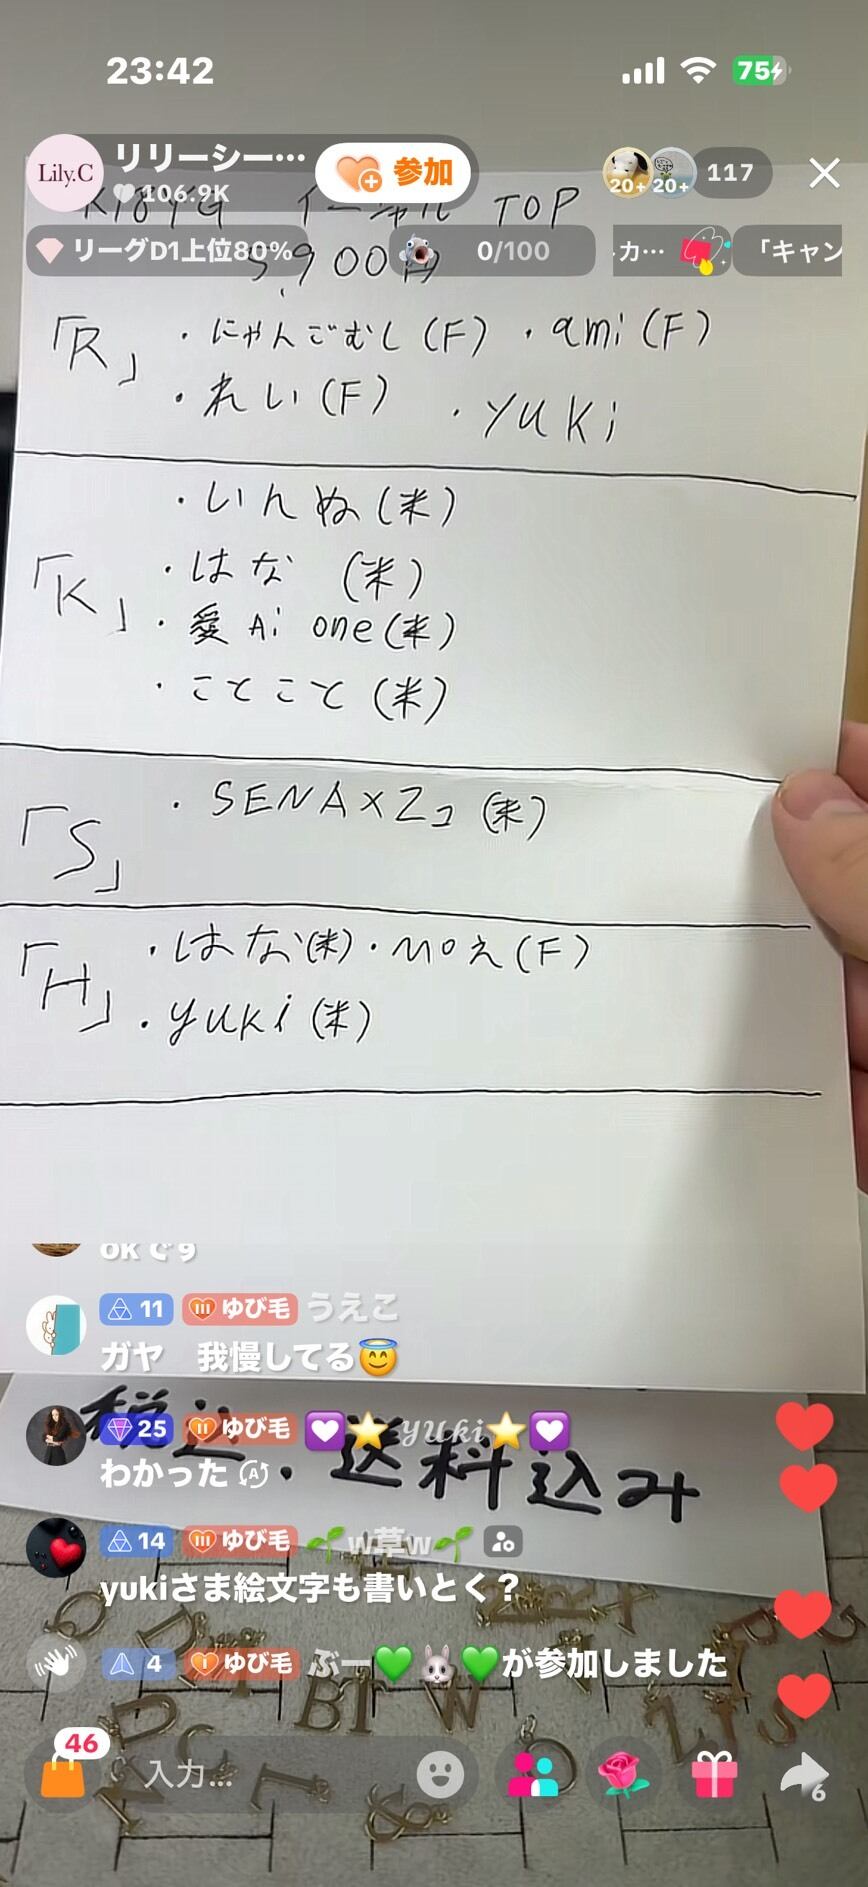 23:42
75
Lily.C
リリーシー…
106.9K
参加
20+
20+
117
K18YG イニシャル TOP
リーグD1上位80%
0/100
カ…
「キャン
5,900円
「R」
・にゃんごむし(F) ・ami(F)
・れい(F) ・yuki
「K」
・いんぬ(米)
・はな (米)
・愛Ai one(米)
・ことこと(米)
「S」
・SENA×Zコ(米)
「H」
・はな(米)・moえ(F)
・yuki(米)
okです
11 III ゆび毛 うえこ
ガヤ 我慢してる😇
25 II ゆび毛 💜⭐yuki⭐💜
わかった
税込・送料込み
14 III ゆび毛 🌱w草w🌱
yukiさま絵文字も書いとく?
4 I ゆび毛 ぶー💚🐰💚が参加しました
46
入力...
6